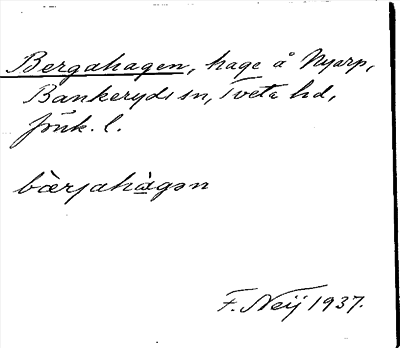 Bergahagen, hage å Nyarp,
Bankeryds sn, Tveta hd,
Jönk. l.
bær̀jahàgən
F. Neij 1937.